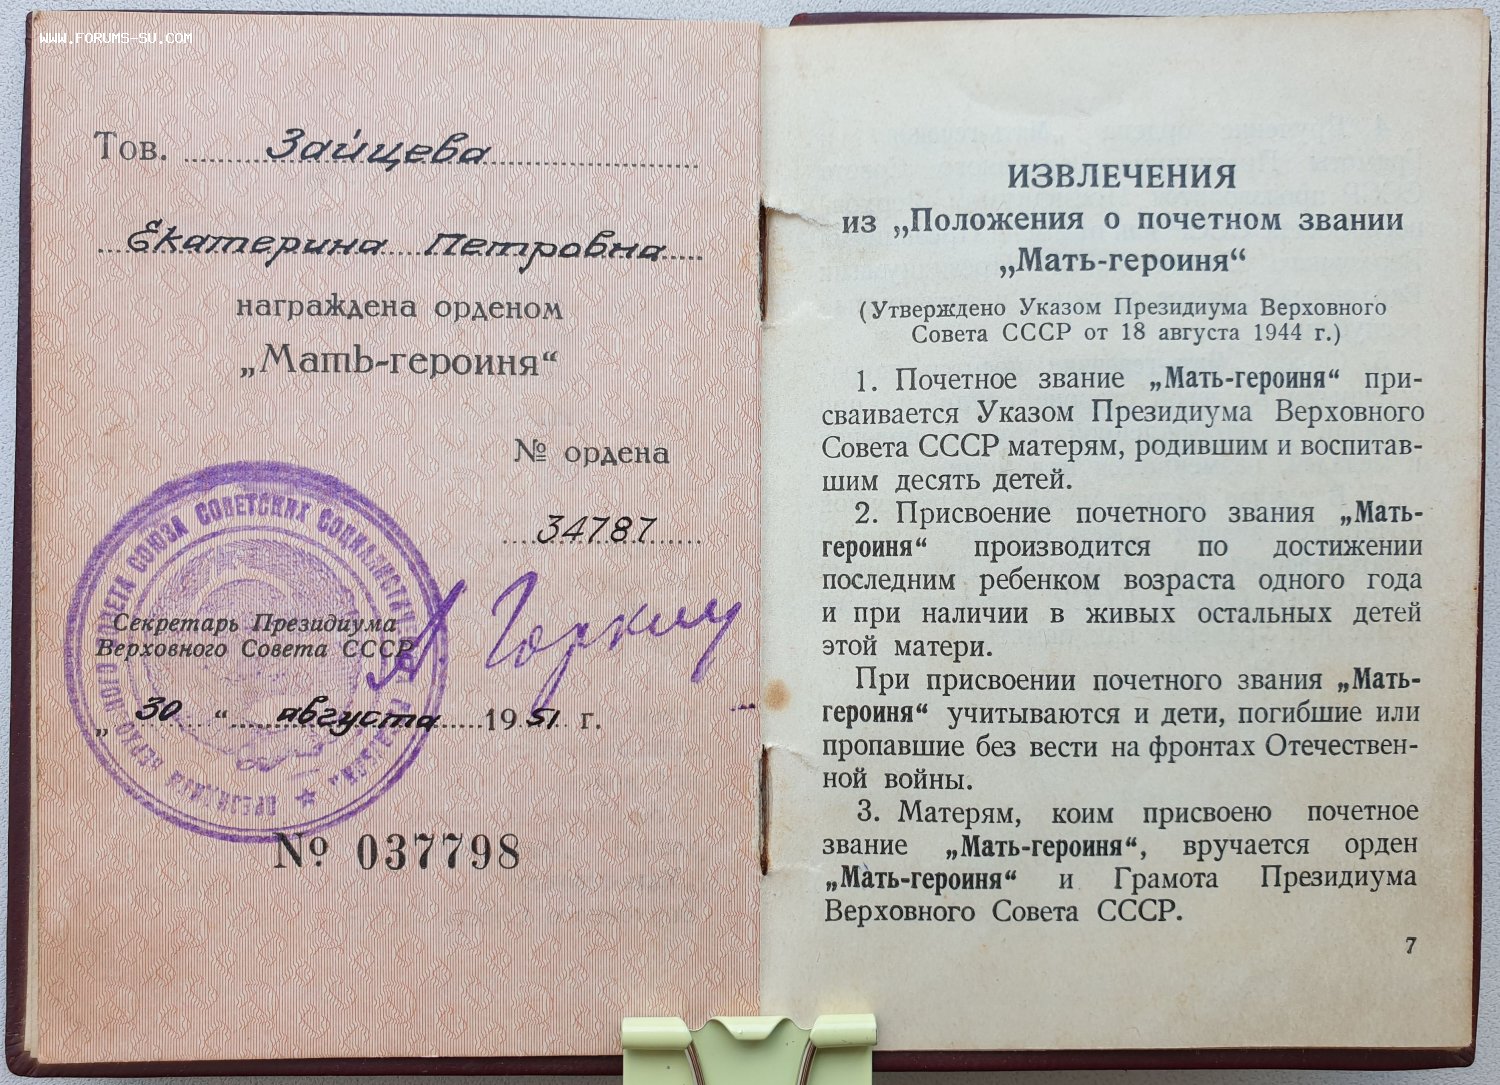 www.forums-su.com
Тов. Зайцева
Екатерина Петровна
награждена орденом
„Мать-героиня“
№ ордена
34787
Секретарь Президиума
Верховного Совета СССР
А. Горкин
„ 30 “ августа 1951 г.
№ 037798
ИЗВЛЕЧЕНИЯ
из „Положения о почетном звании
„Мать-героиня“
(Утверждено Указом Президиума Верховного
Совета СССР от 18 августа 1944 г.)
1. Почетное звание „Мать-героиня“ при-
сваивается Указом Президиума Верховного
Совета СССР матерям, родившим и воспитав-
шим десять детей.
2. Присвоение почетного звания „Мать-
героиня“ производится по достижении
последним ребенком возраста одного года
и при наличии в живых остальных детей
этой матери.
При присвоении почетного звания „Мать-
героиня“ учитываются и дети, погибшие или
пропавшие без вести на фронтах Отечествен-
ной войны.
3. Матерям, коим присвоено почетное
звание „Мать-героиня“, вручается орден
„Мать-героиня“ и Грамота Президиума
Верховного Совета СССР.
7
СОЮЗА СОВЕТСКИХ